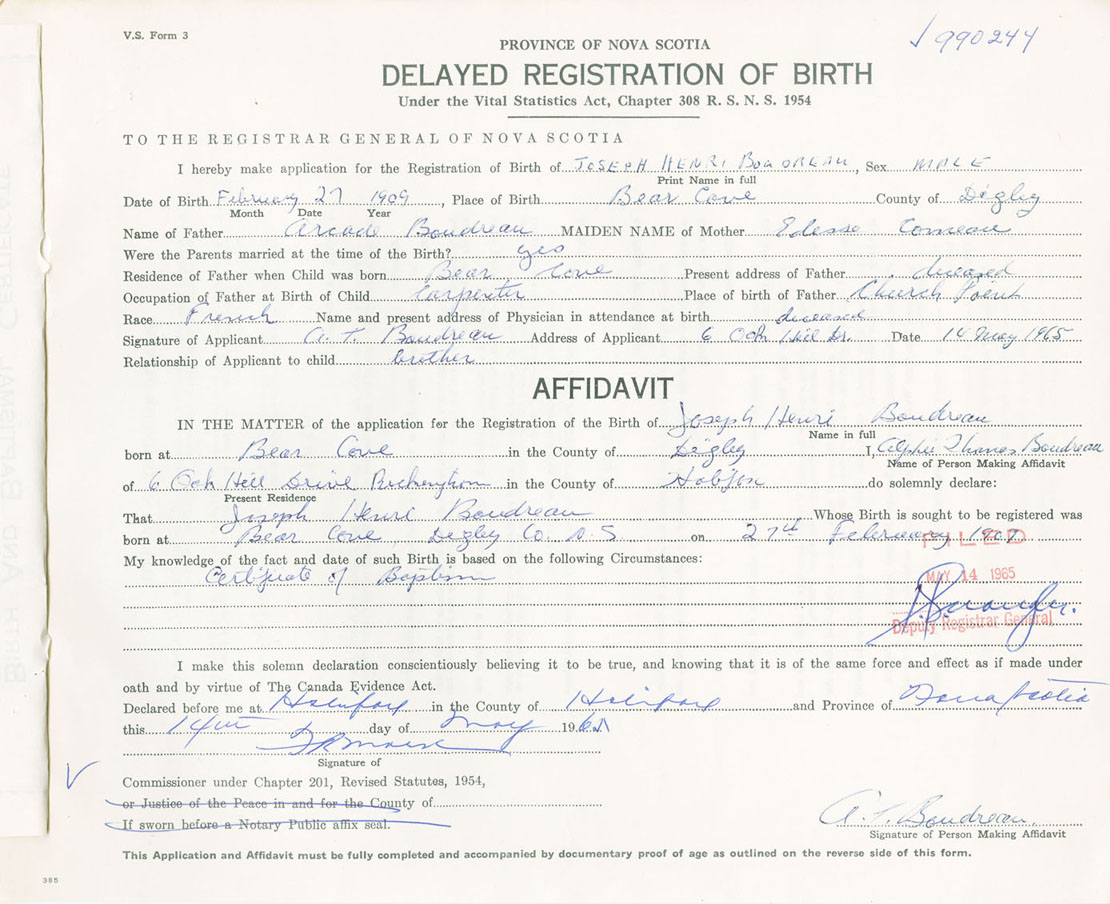 V.S. Form 3
990244
PROVINCE OF NOVA SCOTIA
DELAYED REGISTRATION OF BIRTH
Under the Vital Statistics Act, Chapter 308 R. S. N. S. 1954
TO THE REGISTRAR GENERAL OF NOVA SCOTIA
I hereby make application for the Registration of Birth of JOSEPH HENRI BOUDREAU, Sex MALE
Print Name in full
Date of Birth February 27 1909, Place of Birth Bear Cove County of Digby
Month Date Year
Name of Father Arcade Boudreau MAIDEN NAME of Mother Edesse Comeau
Were the Parents married at the time of the Birth? yes
Residence of Father when Child was born Bear Cove Present address of Father deceased
Occupation of Father at Birth of Child Carpenter Place of birth of Father Church Point
Race French Name and present address of Physician in attendance at birth deceased
Signature of Applicant A. T. Boudreau Address of Applicant 6 Oak Hill Dr. Date 14 May 1965
Relationship of Applicant to child brother
AFFIDAVIT
IN THE MATTER of the application for the Registration of the Birth of Joseph Henri Boudreau
Name in full
born at Bear Cove in the County of Digby I, Alphie Thomas Boudreau
Name of Person Making Affidavit
of 6 Oak Hill Drive in the County of do solemnly declare:
Present Residence
That Joseph Henri Boudreau Whose Birth is sought to be registered was
born at Bear Cove, Digby Co. N.S. on 27th February
FILED
My knowledge of the fact and date of such Birth is based on the following Circumstances:
Certificate of Baptism
MAY 14 1965
Deputy Registrar General
I make this solemn declaration conscientiously believing it to be true, and knowing that it is of the same force and effect as if made under
oath and by virtue of The Canada Evidence Act.
Declared before me at Halifax in the County of Halifax and Province of Nova Scotia
this 14th day of May 1965
Signature of
Commissioner under Chapter 201, Revised Statutes, 1954,
or Justice of the Peace in and for the County of
If sworn before a Notary Public affix seal.
A. T. Boudreau
Signature of Person Making Affidavit
This Application and Affidavit must be fully completed and accompanied by documentary proof of age as outlined on the reverse side of this form.
385